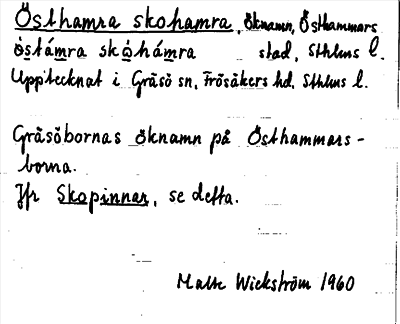 Östhamra skohamra, öknamn, Östhammars
östámra skóhámra stad, Sthlms l.
Upptecknat i Gräsö sn, Frösåkers hd, Sthlms l.
Gräsöbornas öknamn på Östhammars-
borna.
Jfr Skopinnar, se detta.
Malte Wickström 1960